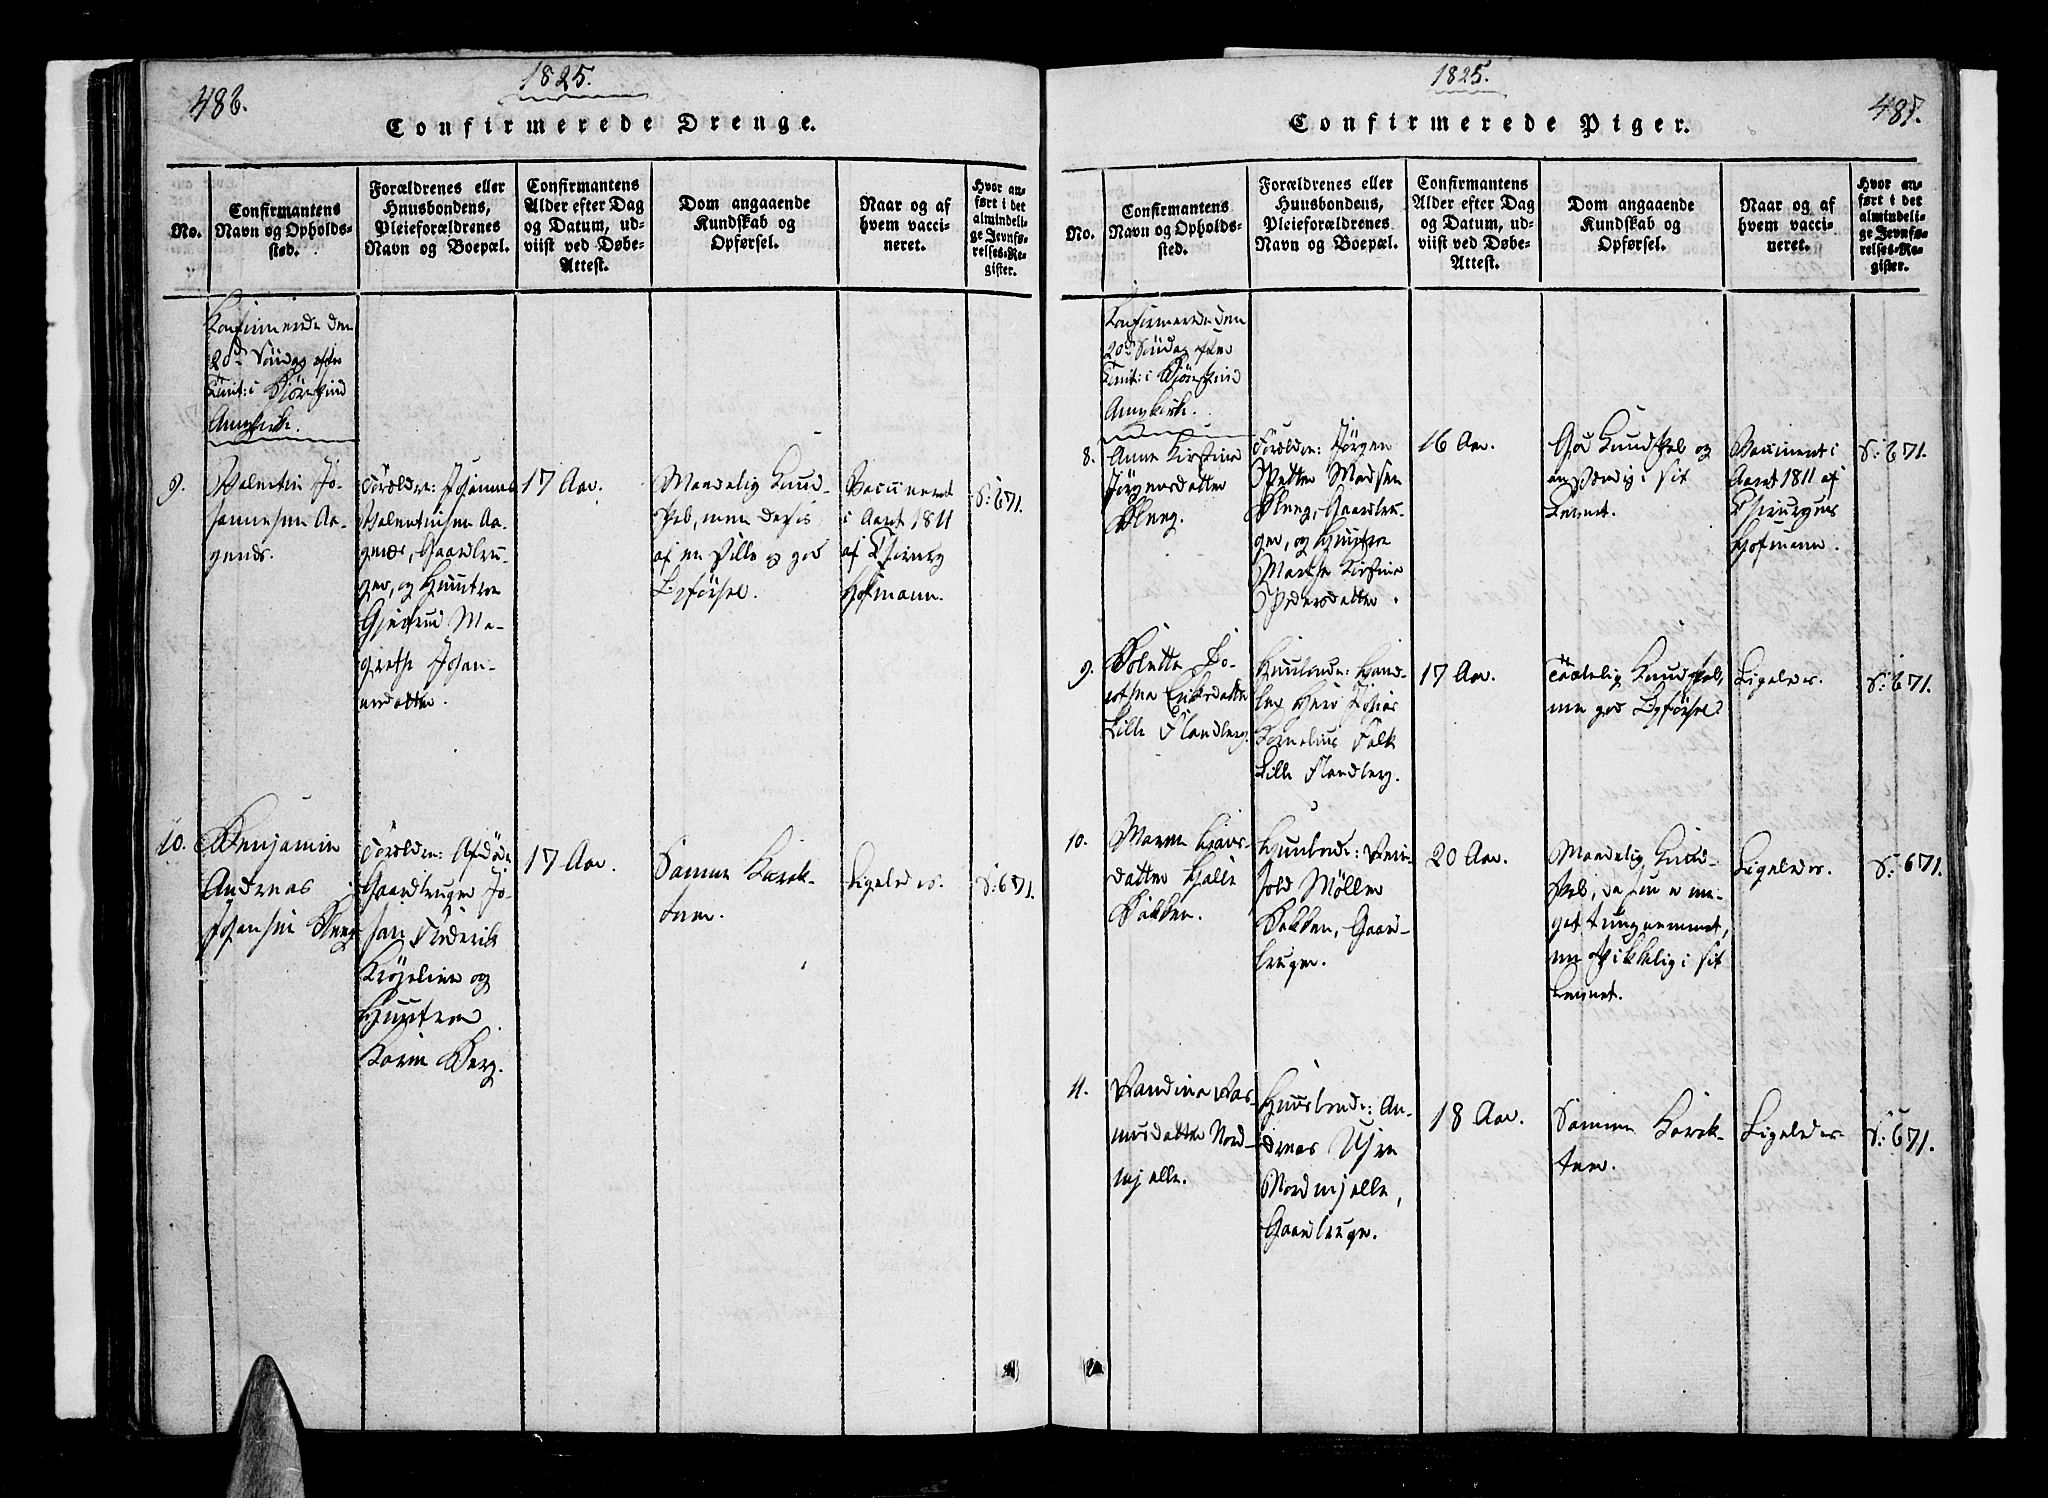 486.
1825.
Confirmerede Drenge.
No.
Confirmantens
Navn og Opholds-
sted.
Forældrenes eller
Huusbondens,
Pleieforældrenes
Navn og Boepæl.
Confirmantens
Alder efter Dag
og Datum, ud-
viist ved Døbe-
Attest.
Dom angaaende
Kundskab og
Opførsel.
Naar og af
hvem vacci-
neret.
Hvor an-
ført i det
almindeli-
ge Jevnfø-
relses-Re-
gister.
Konfirmerede den
20de Søndag efter
Trinit: i
9.
Valentin Jo-
hannesen Aa-
Forældre: Johannes
Valentinsen Aa-
Gaardbru-
ger, og Hustroe
Gjertrud Ma-
grethe Johan-
nesdatter.
17 Aar.
Maadelig Kund-
skab, men derhos
af en stille og god
Opførsel.
Vaccineret
i Aaret 1811
af Chirurg
Hofmann.
S: 671.
10.
Benjamin
Andreas
Johansen
Forældre: Afdøde
Gaardbruger Jo-
han Frederik
og
Hustroe
Karen Berg.
17 Aar.
Samme Karak-
teer.
Ligeledes.
S: 671.
1825.
487.
Confirmerede Piger.
No.
Confirmantens
Navn og Opholds-
sted.
Forældrenes eller
Huusbondens,
Pleieforældrenes
Navn og Boepæl.
Confirmantens
Alder efter Dag
og Datum, ud-
viist ved Døbe-
Attest.
Dom angaaende
Kundskab og
Opførsel.
Naar og af
hvem vacci-
neret.
Hvor an-
ført i det
almindeli-
ge Jevnfø-
relses-Re-
gister.
Konfirmerede den
20de Søndag efter
Trinit: i
8.
Anne Kirstine
Jørgensdatter
Forældre: Jørgen
Petter Madsen
Gaardbru-
ger, og Hustroe
Marthe Kirstine
Pedersdatter.
16 Aar.
God Kundskab og
anstændig i sit
Levnet.
Vaccineret i
Aaret 1811 af
Chirurgus
Hofmann.
S: 671.
9.
Eriksdatter
Lille Flandberg.
Huusbonde: Hand-
Josias
Kornelius Falk
Lille Flandberg.
17 Aar.
Taalelig Kundskab,
men god Opførsel.
Ligeledes.
S: 671.
10.
Maren
datter
Bakken.
Huusbonde: Rein-
hold Møller
Bakken, Gaard-
bruger.
20 Aar.
Maadelig Kund-
skab, da hun er me-
get tungnemmet,
men skikkelig i sit
Levnet.
Ligeledes.
S: 671.
Ras-
musdatter Nord-
mjelle.
Huusbonde: An-
dreas
Nordmjelle,
Gaardbruger.
18 Aar.
Samme Karak-
teer.
Ligeledes
S: 671.